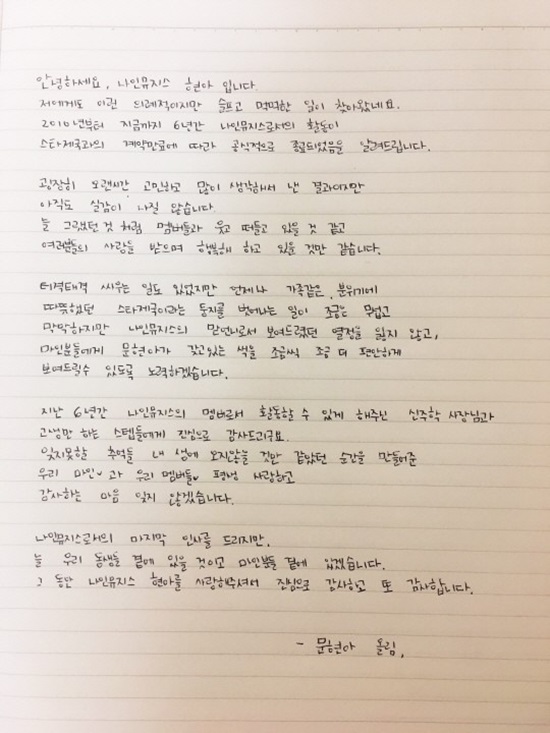 안녕하세요, 나인뮤지스 현아 입니다
저에게도 이런 의례적이지만 슬프고 먹먹한 일이 찾아왔네요.
2010년부터 지금까지 6년간 나인뮤지스로서의 활동이
스타제국과의 계약만료에 따라 공식적으로 종료되었음을 알려드립니다.
굉장히 오랜시간 고민하고 많이 생각해서 낸 결과이지만
아직도 실감이 나질 않습니다.
늘 그랬던 것 처럼 멤버들과 웃고 떠들고 있을 것 같고
여러분들의 사랑을 받으며 행복해 하고 있을 것만 같습니다.
티격태격 싸우는 일도 있었지만 언제나 가족같은 분위기에
따뜻했던 스타제국이라는 둥지를 벗어나는 일이 조금은 무섭고
막막하지만 나인뮤지스의 맏언니로서 보여드렸던 열정을 잃지 않고,
마인분들에게 문현아가 갖고있는 색을 조금씩 조금 더 편안하게
보여드릴수 있도록 노력하겠습니다.
지난 6년간 나인뮤지스의 멤버로서 활동할 수 있게 해주신 신주학 사장님과
고생만 하는 스텝들에게 진심으로 감사드리구요.
잊지못할 추억들 내 생에 오지않을 것만 같았던 순간을 만들어준
우리 마인♥과 우리 멤버들♥ 평생 사랑하고
감사하는 마음 잊지 않겠습니다.
나인뮤지스로서의 마지막 인사를 드리지만,
늘 우리 동생들 곁에 있을 것이고 마인분들 곁에 있겠습니다.
그 동안 나인뮤지스 현아를 사랑해주셔서 진심으로 감사하고 또 감사합니다.
- 문현아 올림.